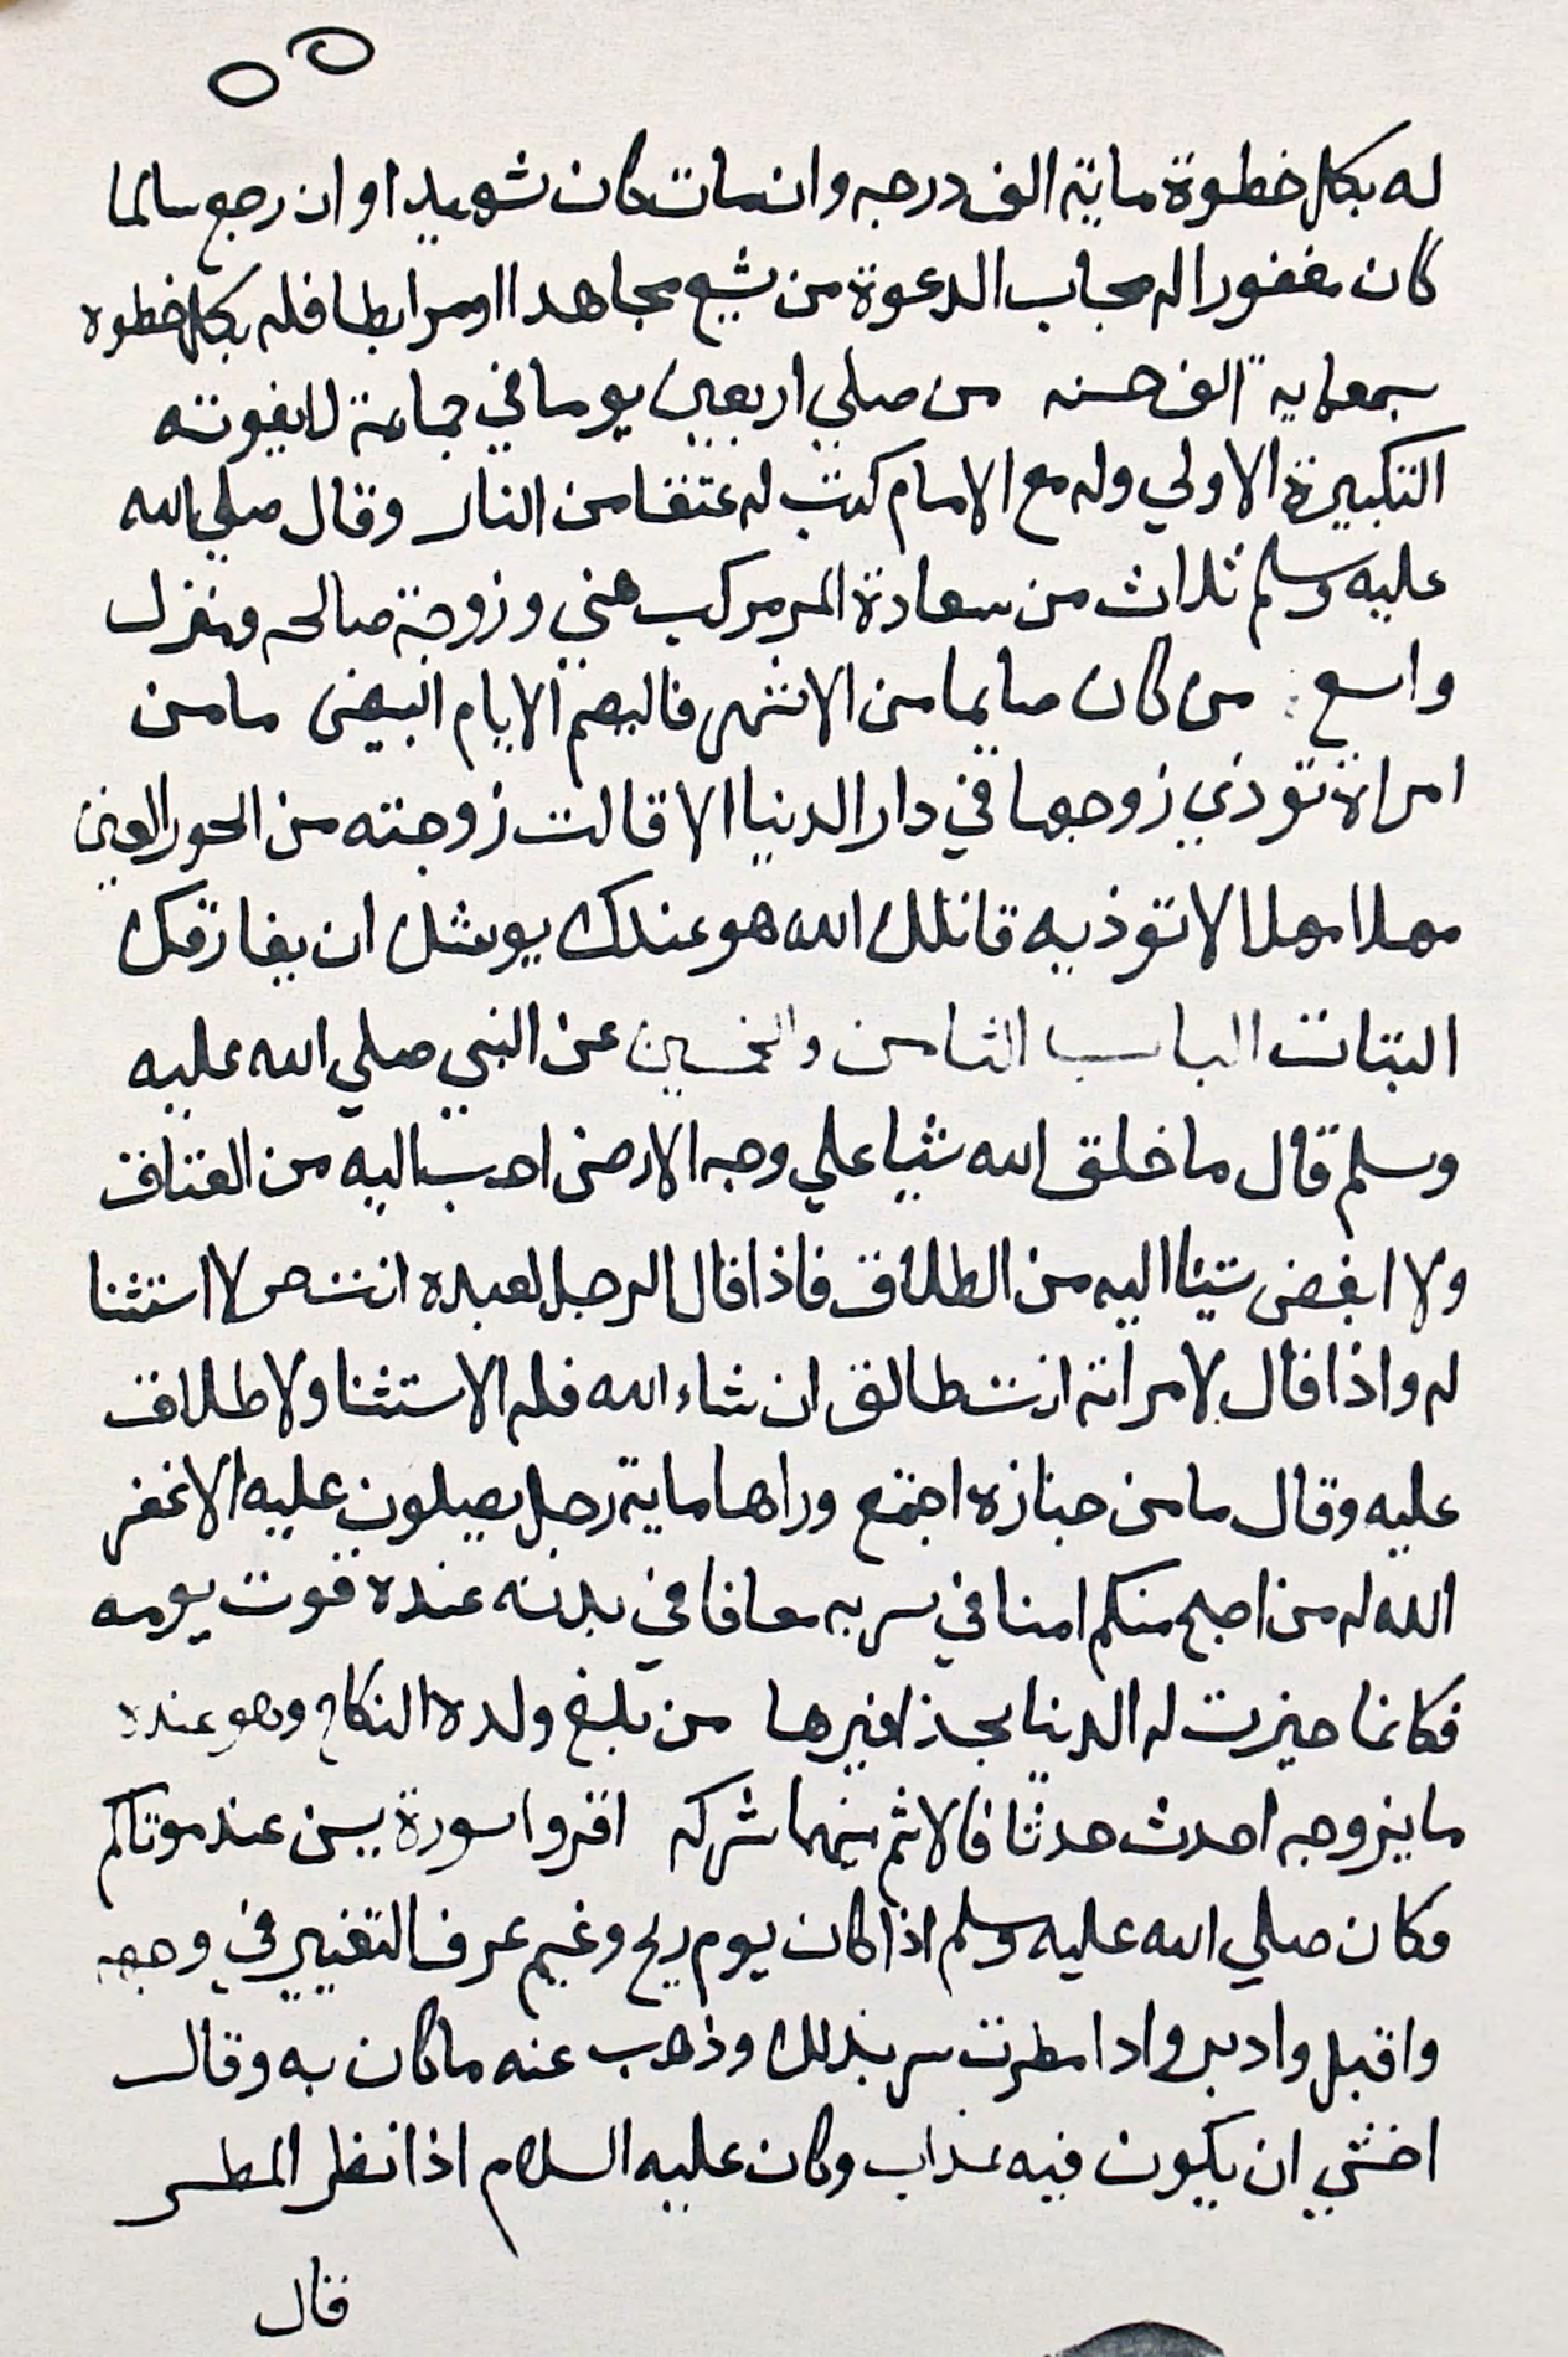 ٥٥
له بكل خطوة ماية الف درجه وان مات كان شهيدا وان رجع سالما
كان مغفورا له مجاب الدعوة من شيع مجاهدا او مرابطا فله بكل خطوة
سبعماية الف حسنه من صلي اربعين يوما في جماعة لا يفوته
التكبيرة الاولي وله مع الامام كتب له عتقا من النار وقال صلي الله
عليه وسلم ثلاث من سعادة المر مركب هني وزوجة صالحه ومنزل
واسع من كان صايما من الاشهر فاليصم الايام البيض ما من
امراة توذي زوجها في دار الدنيا الا قالت زوجته من الحور العين
مهلا مهلا لا توذيه قاتلك الله هو عندك يوشك ان يفارقك
البتات الباب الثامن والخمسين عن النبي صلي الله عليه
وسلم قال ما خلق الله شيا علي وجه الارض احب اليه من العتاق
ولا ابغض شيئا اليه من الطلاق فاذا قال الرجل لعبده انت حر لا استثنا
له واذا قال لامراته انت طالق ان شاء الله فله الاستثنا ولا طلاق
عليه وقال ما من جنازه اجتمع وراها ماية رجل يصلون عليه الا غفر
الله له من اصبح منكم امنا في سربه معافا في بدنه عنده قوت يومه
فكانما حيزت له الدنيا بحذافيرها من بلغ ولده النكاح وهو عنده
ما يزوجه احدث حدثا فالاثم بينهما شركه اقروا سورة يسن عند موتاكم
فكان صلي الله عليه وسلم اذا كان يوم ريح وغيم عرف التغيير في وجهه
واقبل وادبر واذا مطرت سر بذلك وذهب عنه ما كان به وقال
اخشي ان يكون فيه عذاب وكان عليه السلام اذا نظر المطر
قال